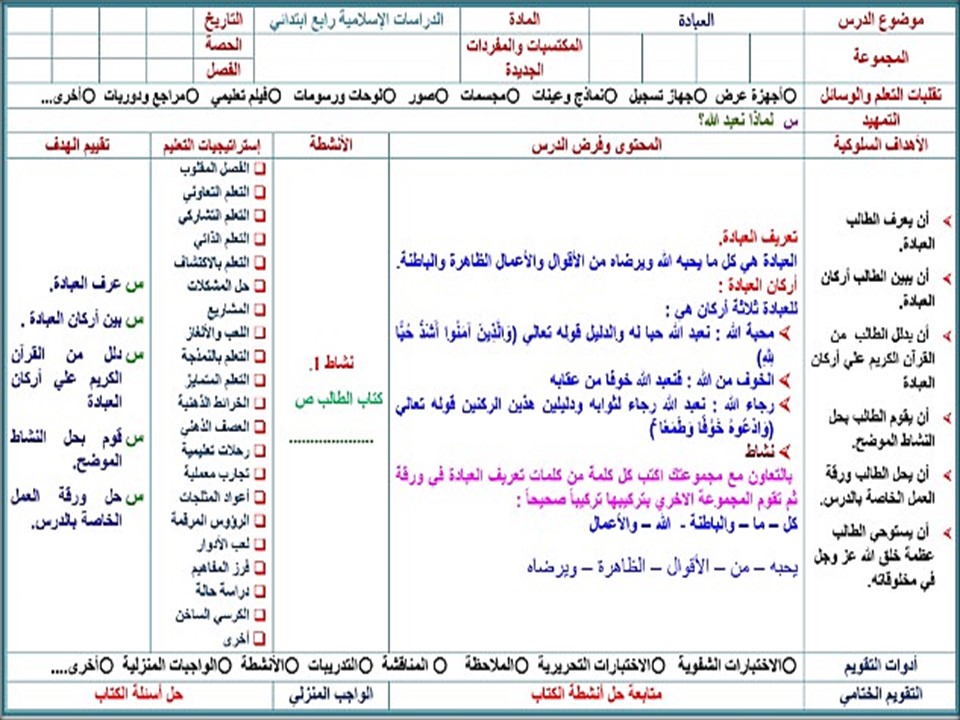 موضوع الدرس العبادة المادة الدراسات الإسلامية رابع ابتدائي التاريخ
المجموعة المكتسبات والمفردات الجديدة الحصة
الفصل
تقليات التعلم والوسائل أجهزة عرض جهاز تسجيل نماذج وعينات مجسمات صور لوحات ورسومات فيلم تعليمي مراجع ودوريات أخرى...
التمهيد س لماذا نعبد الله؟
الأهداف السلوكية المحتوى وفرض الدرس الأنشطة إستراتيجيات التعليم تقييم الهدف
أن يعرف الطالب
العبادة.
أن يبين الطالب أركان
العبادة.
أن يدلل الطالب من
القرآن الكريم علي أركان
العبادة
أن يقوم الطالب بحل
النشاط الموضح.
أن يحل الطالب ورقة
العمل الخاصة بالدرس.
أن يستوحي الطالب
عظمة خلق الله عز وجل
في مخلوقاته.
تعريف العبادة.
العبادة هي كل ما يحبه الله ويرضاه من الأقوال والأعمال الظاهرة والباطنة.
أركان العبادة :
للعبادة ثلاثة أركان هي :
محبة الله : نعبد الله حبا له والدليل قوله تعالي (وَالَّذِينَ آمَنُوا أَشَدُّ حُبًّا
لِلَّهِ)
الخوف من الله : فنعبد الله خوفا من عقابه
رجاء الله : نعبد الله رجاء لثوابه ودليلين هذين الركنين قوله تعالي
(وَادْعُوهُ خَوْفًا وَطَمَعًا)
نشاط
بالتعاون مع مجموعتك اكتب كل كلمة من كلمات تعريف العبادة في ورقة
ثم تقوم المجموعة الاخري بتركيبها تركيباً صحيحاً :
كل – ما – والباطنة - الله – والأعمال
يحبه – من – الأقوال – الظاهرة – ويرضاه
نشاط 1.
كتاب الطالب ص
....................
الفصل المقلوب
التعلم التعاوني
التعلم التشاركي
التعلم الذاتي
التعلم بالاكتشاف
حل المشكلات
المشاريع
اللعب والألغاز
التعلم بالنمذجة
التعلم المتمايز
الخرائط الذهنية
العصف الذهني
رحلات تعليمية
تجارب معملية
أعواد المثلجات
الرؤوس المرقمة
لعب الأدوار
فرز المفاهيم
دراسة حالة
الكرسي الساخن
أخرى
س عرف العبادة.
س بين أركان العبادة .
س دلل من القرآن
الكريم علي أركان
العبادة
س قوم بحل النشاط
الموضح.
س حل ورقة العمل
الخاصة بالدرس.
أدوات التقويم الاختبارات الشفوية الاختبارات التحريرية الملاحظة المناقشة التدريبات الأنشطة الواجبات المنزلية أخرى....
التقويم الختامي متابعة حل أنشطة الكتاب الواجب المنزلي حل أسئلة الكتاب